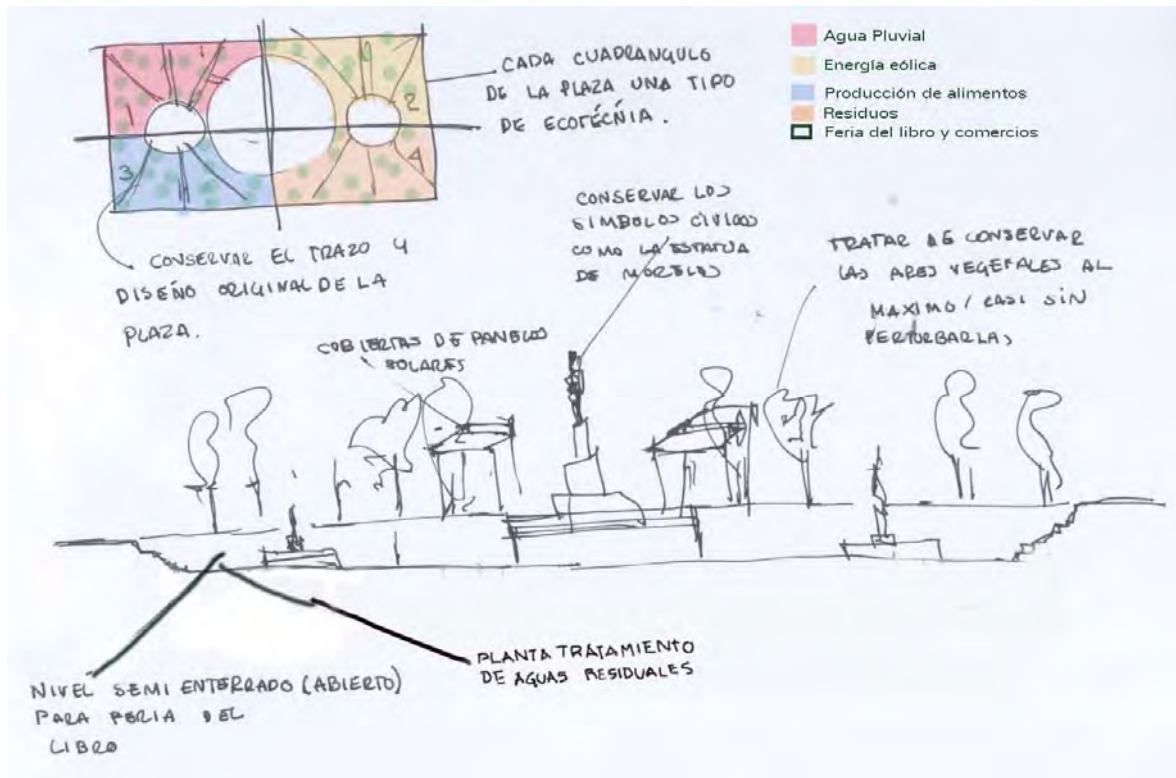 CADA CUADRANGULO
DE LA PLAZA UNA TIPO
DE ECOTÉCNIA.
Agua Pluvial
Energía eólica
Producción de alimentos
Residuos
Feria del libro y comercios
1
2
3
4
CONSERVAR EL TRAZO Y
DISEÑO ORIGINAL DE LA
PLAZA.
CONSERVAR LOS
SIMBOLOS CÍVICOS
COMO LA ESTATUA
DE MORELOS
TRATAR DE CONSERVAR
LAS ARES VEGETALES AL
MAXIMO / CASI SIN
PERTURBARLAS
COBIERTAS DE PANELES
SOLARES
PLANTA TRATAMIENTO
DE AGUAS RESIDUALES
NIVEL SEMI ENTERRADO (ABIERTO)
PARA FERIA DEL
LIBRO